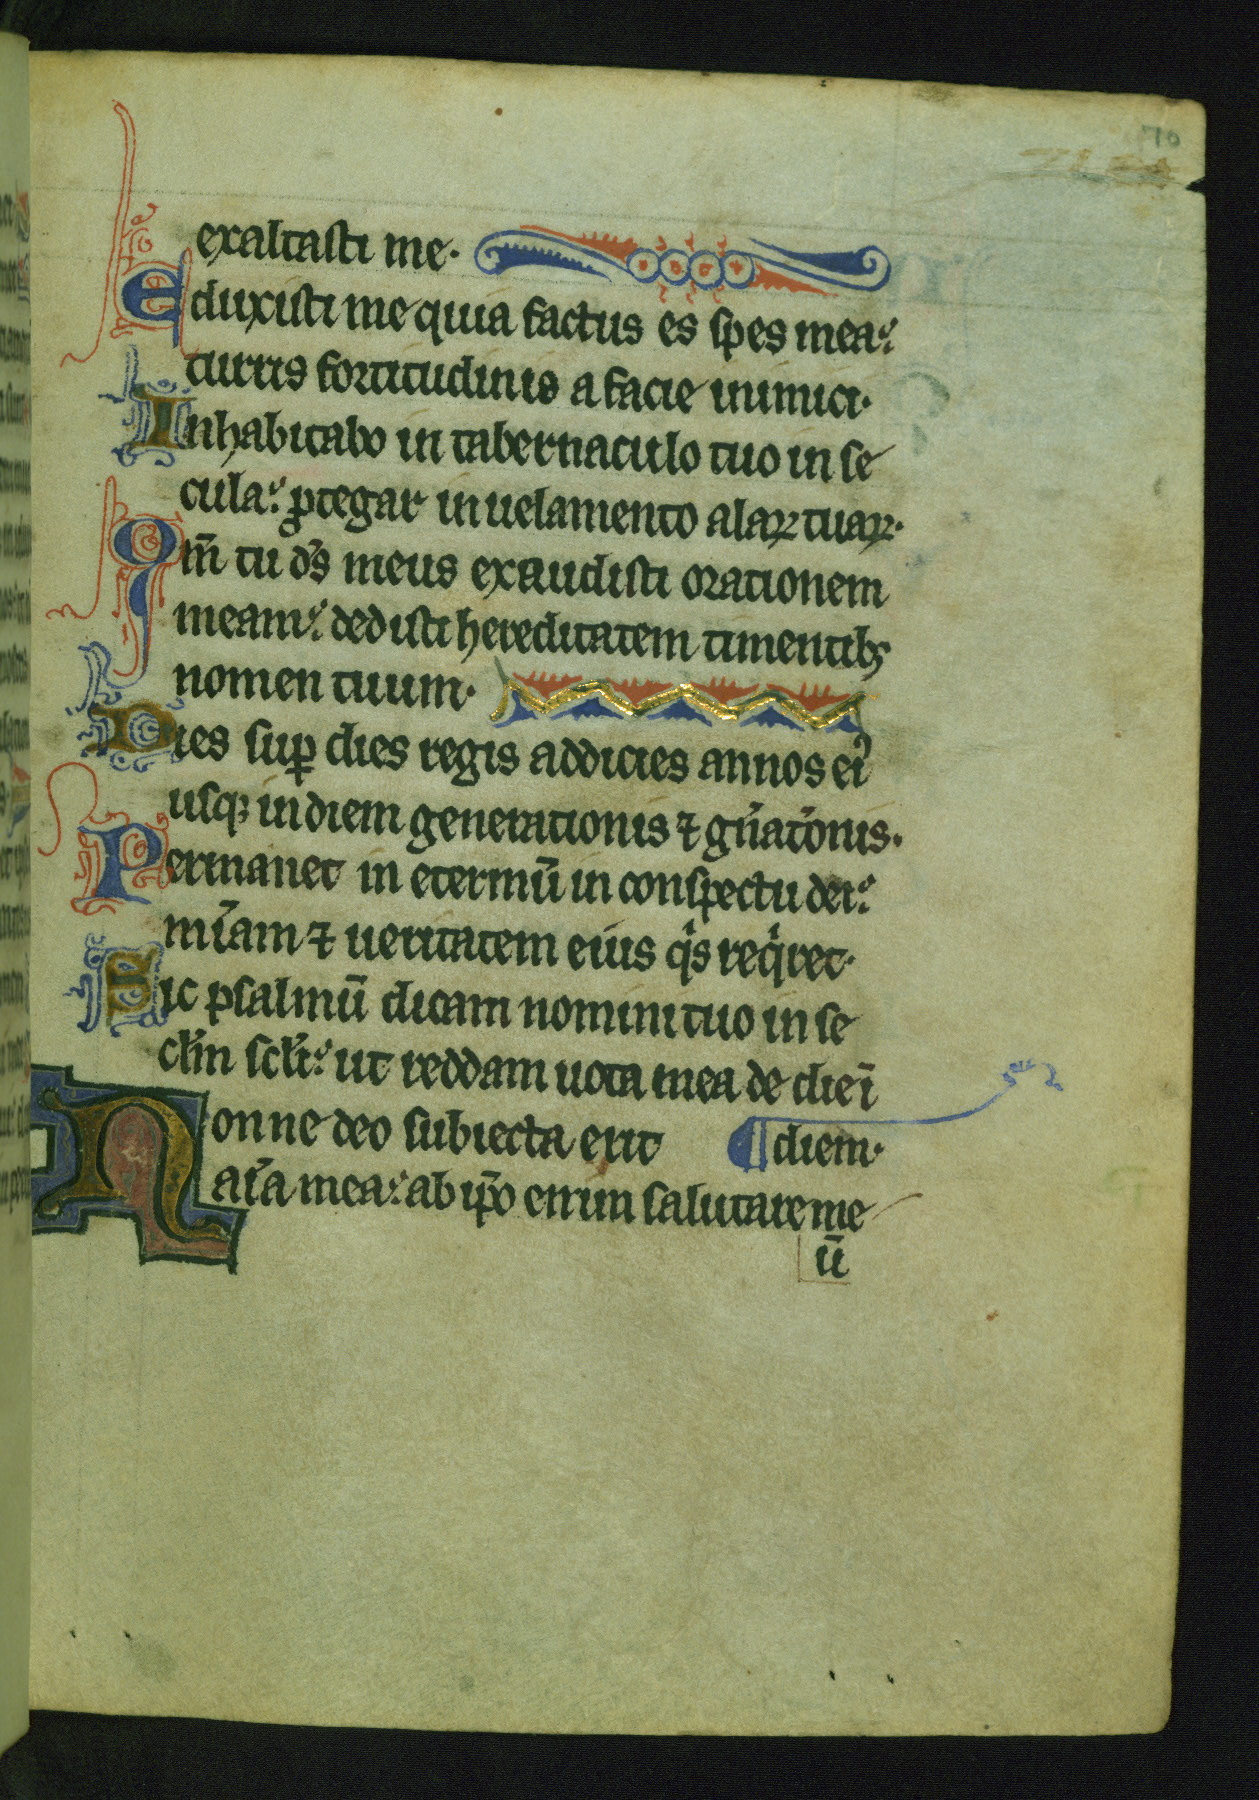 70
exaltasti me·
Eduxisti me quia factus es spes mea:
turris fortitudinis a facie inimici·
Inhabitabo in tabernaculo tuo in se
cula: ꝓtegar in uelamento alaꝝ tuaꝝ·
Qm̄ tu ds̄ meus exaudisti orationem
meam: dedisti hereditatem timentibꝫ
nomen tuum·
Dies suꝑ dies regis addicies annos eiꝰ
usqꝫ in diem generationis ⁊ gn̄atōnis·
Permanet in eternū in conspectu dei:
mīam ⁊ ueritatem eius qͥs reqͥret·
Sic psalmū dicam nomini tuo in se
cłm scłi: ut reddam uota mea de die ī
Nonne deo subiecta erit ¶ diem·
aīa mea: ab ip̄o enim salutare me
ū